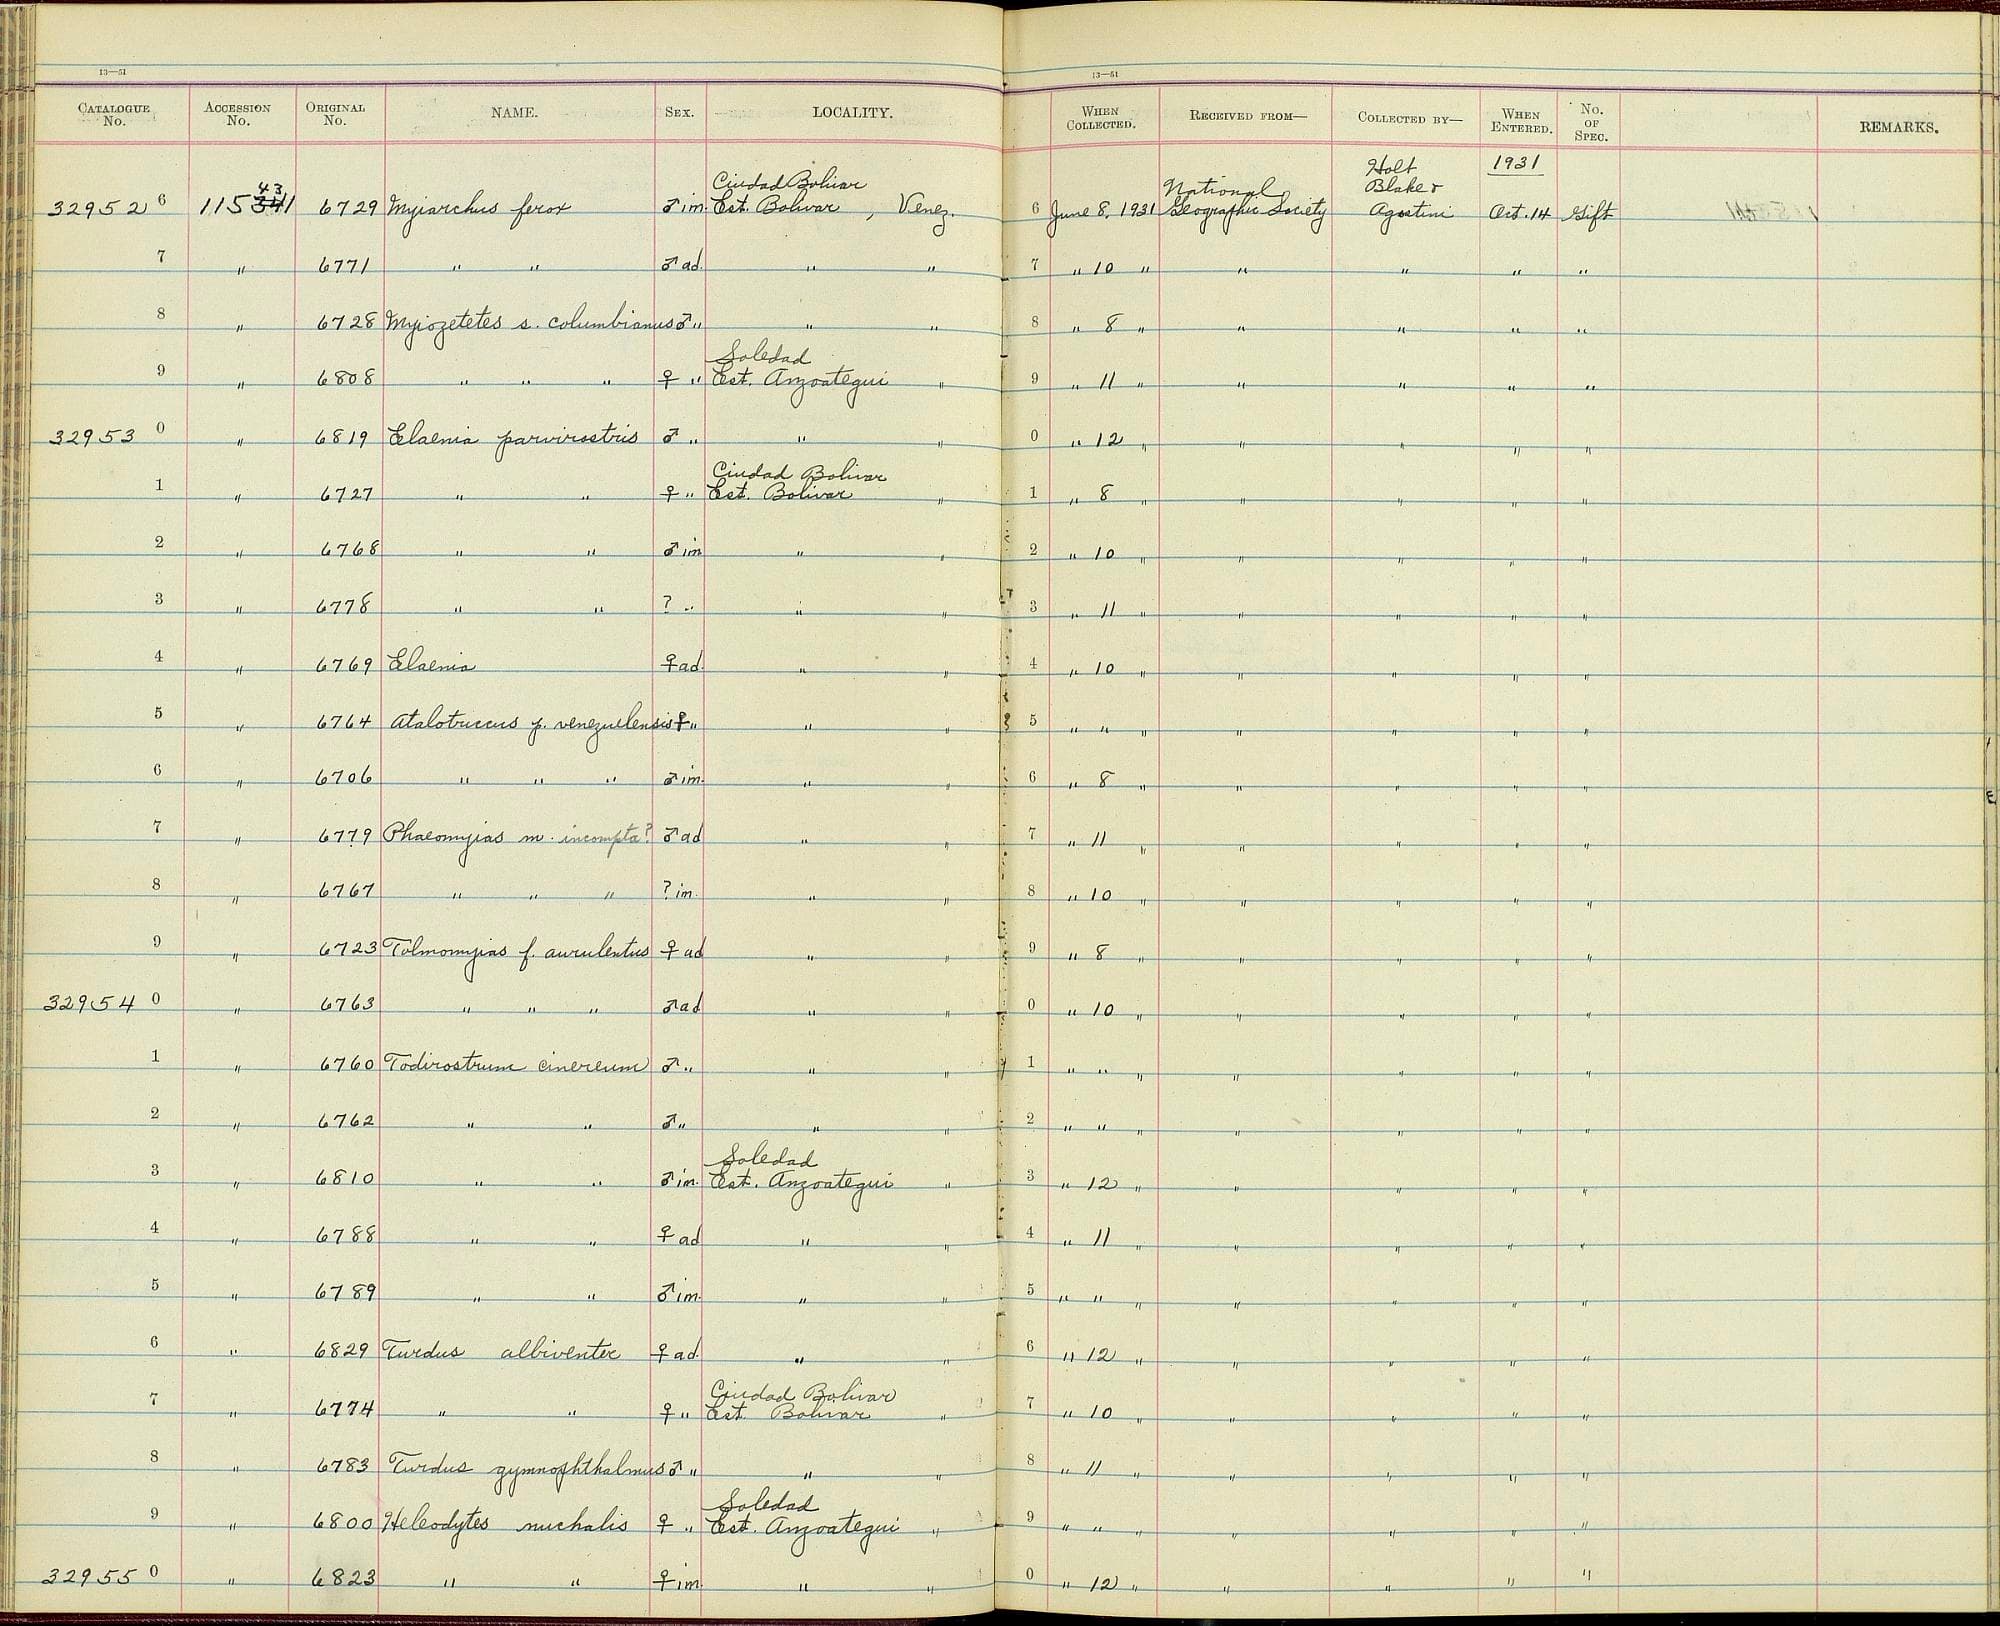 13—51
13—51
CATALOGUE No. ACCESSION No. ORIGINAL No. NAME. SEX. LOCALITY. WHEN COLLECTED. RECEIVED FROM— COLLECTED BY— WHEN ENTERED. No. OF SPEC. REMARKS.
Ciudad Bolivar Holt 1931
43 National Blake &
32952 6 115 341 6729 Myiarchus ferox ♂ im. Est. Bolivar, Venez. 6 June 8, 1931 Geographic Society Agostini Oct. 14 Gift
7 " 6771 " " ♂ ad. " " 7 " 10 " " " " "
8 " 6728 Myiozetetes s. columbianus ♂ " " " 8 " 8 " " " " "
Soledad
9 " 6808 " " " ♀ " Est. Anzoategui " 9 " 11 " " " " "
32953 0 " 6819 Elaenia parvirostris ♂ " " " 0 " 12 " " " " "
Ciudad Bolivar
1 " 6727 " " ♀ " Est. Bolivar " 1 " 8 " " " " "
2 " 6768 " " ♂ im " " 2 " 10 " " " " "
3 " 6778 " " ? " " " 3 " 11 " " " " "
4 " 6769 Elaenia ♀ ad. " " 4 " 10 " " " " "
5 " 6764 Atalotriccus p. venezuelensis ♀ " " " 5 " " " " " " "
6 " 6706 " " " ♂ im. " " 6 " 8 " " " " "
7 " 6779 Phaeomyias m. incompta? ♂ ad " " 7 " 11 " " " " "
8 " 6767 " " " ? im. " " 8 " 10 " " " " "
9 " 6723 Tolmomyias f. aurulentus ♀ ad " " 9 " 8 " " " " "
32954 0 " 6763 " " " ♂ ad " " 0 " 10 " " " " "
1 " 6760 Todirostrum cinereum ♂ " " " 1 " " " " " " "
2 " 6762 " " ♂ " " " 2 " " " " " " "
Soledad
3 " 6810 " " ♂ im. Est. Anzoategui " 3 " 12 " " " " "
4 " 6788 " " ♀ ad " " 4 " 11 " " " " "
5 " 6789 " " ♂ im. " " 5 " " " " " " "
6 " 6829 Turdus albiventer ♀ ad. " " 6 " 12 " " " " "
Ciudad Bolivar
7 " 6774 " " ♀ " Est. Bolivar " 7 " 10 " " " " "
8 " 6783 Turdus gymnophthalmus ♂ " " " 8 " 11 " " " " "
Soledad
9 " 6800 Heleodytes nuchalis ♀ " Est. Anzoategui " 9 " " " " " " "
32955 0 " 6823 " " ♀ im. " " 0 " 12 " " " " "